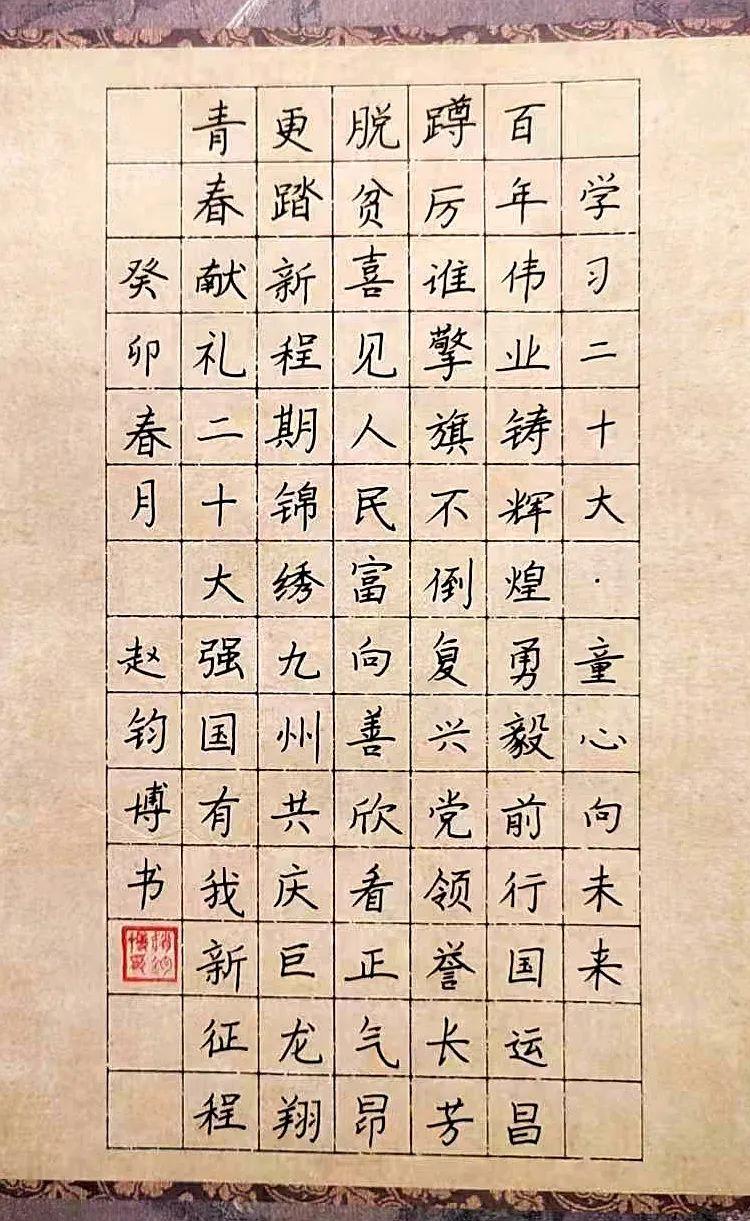 学习二十大·童心向未来
百年伟业铸辉煌勇毅前行国运昌
蹲厉谁擎旗不倒复兴党领誉长芳
脱贫喜见人民富向善欣看正气昂
更踏新程期锦绣九州共庆巨龙翔
青春献礼二十大强国有我新征程
癸卯春月 赵钧博书